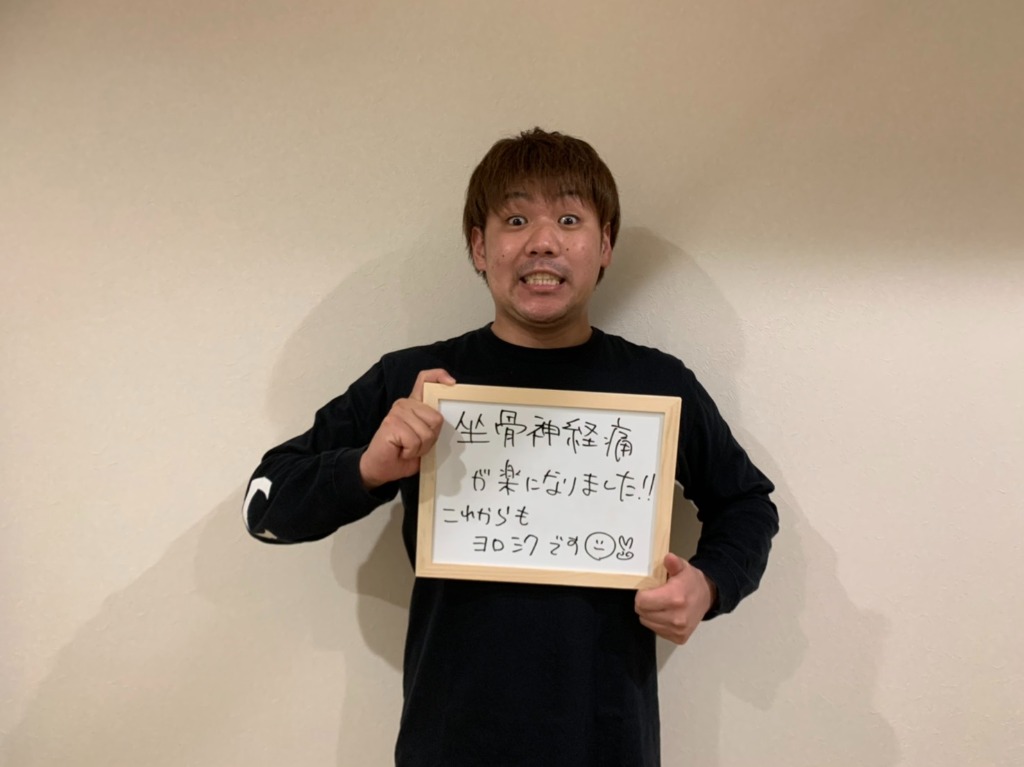 坐骨神経痛
が楽になりました!!
これからも
ヨロシクです